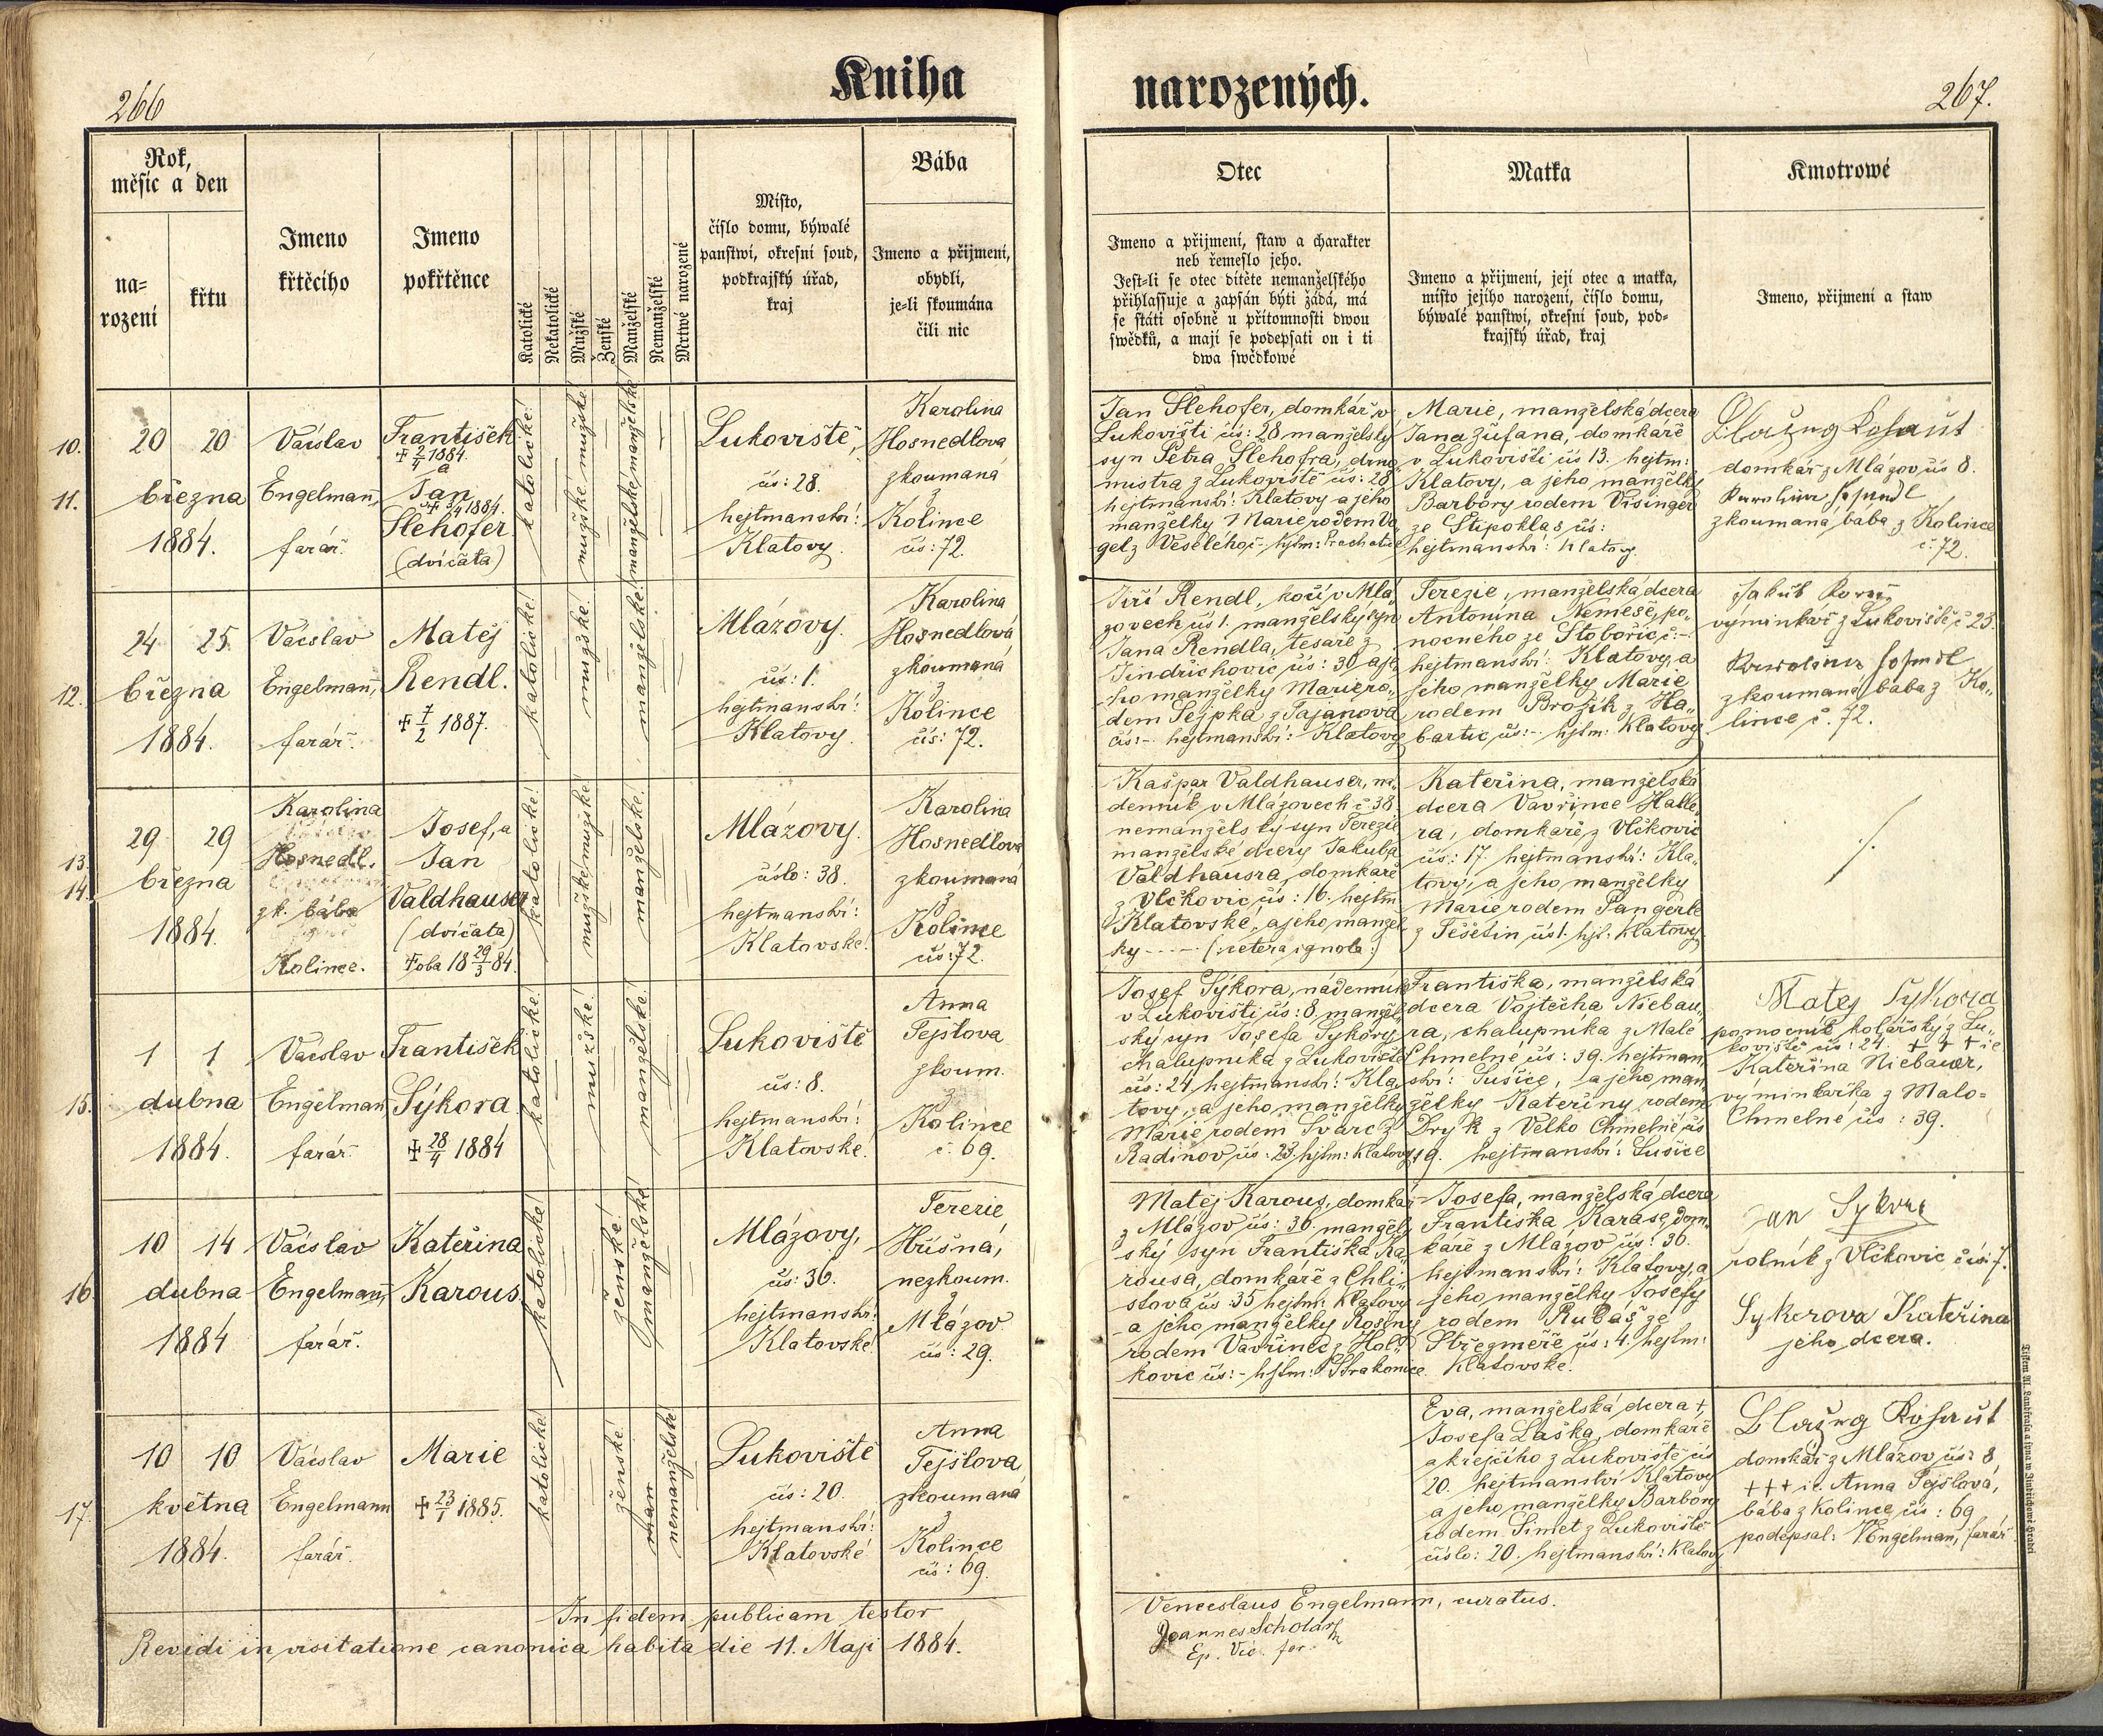 266
Kniha
narozených.
267.
Rok,
měsíc a den
na=
rození
křtu
Jmeno
křtěcího
Jmeno
pokřtěnce
Katolické
Nekatolické
Mužské
Ženské
Manželské
Nemanželské
Mrtwě narozené
Místo,
číslo domu, býwalé
panstwí, okresní soud,
podkrajský úřad,
kraj
Bába
Jmeno a přijmení,
obydlí,
je-li skoumána
čili nic
Otec
Jmeno a přijmení, staw a charakter
neb řemeslo jeho.
Jest-li se otec dítěte nemanželského
přihlassuje a zapsán býti žádá, má
se státi osobně u přítomnosti dwou
swědků, a mají se podepsati on i ti
dwa swědkowé
Matka
Jmeno a přijmení, její otec a matka,
místo jejího narození, číslo domu,
býwalé panstwí, okresní soud, pod-
krajský úřad, kraj
Kmotrowé
Jmeno, přijmení a staw
10.
11.
20 20
března
1884.
Václav
Engelmann,
farář.
František
+ 2/4 1884.
a
Jan
+ 3/4 1884.
Slehofer
(dvíčata)
katolické!
mužské mužské!
manželské manželské!
Lukoviště,
čís: 28.
hejtmanství:
Klatovy.
Karolina
Hosnedlova
zkoumaná
z
Kolince
čís: 72.
Jan Slehofer, domkář v
Lukovišti čís: 28 manželský
syn Petra Slehofra, domo„
mistra z Lukoviště čís: 28
hejtmanství: Klatovy a jeho
manželky Marie rodem Vo„
gel z Veselého č– hjtm: Prachatice
Marie, manželská dcera
Jana Žufana, domkáře
v Lukovišti čís 13. hejtm:
Klatovy, a jeho manželky
Barbory rodem Visinger
ze Stipoklas čís:
hejtmanství: Klatovy.
Blažej Kohaut
domkář z Mlázov čís 8.
Karolina Hosnedl
zkoumaná bába z Kolince
č. 72.
12.
24 25
března
1884.
Václav
Engelmann,
farář.
Matěj
Rendl.
+ 7/2 1887.
katolické!
mužské!
manželské!
Mlázovy.
čís: 1.
hejtmanství:
Klatovy.
Karolina
Hosnedlová
zkoumaná
z
Kolince
čís: 72.
Jiří Rendl, kočí v Mlá„
zovech čís 1. manželský syn
Jana Rendla, tesaře z
Jindřichovic čís: 30 a je„
ho manželky Marie ro„
dem Sejpka z Tajanova
čís:– hejtmanství: Klatovy
Terezie, manželská dcera
Antonína Nemese, po„
nocného ze Stobořic, č:–
hejtmanství: Klatovy, a
jeho manželky Marie
rodem Brožík z Ha„
bartic čís:– hjtm: Klatovy
Jakub
výminkář z Lukoviště č 23.
Karolina Hosnedl
zkoumaná bába z Ko„
lince č. 72.
13.
14.
29 29
března
1884.
Karolina
Hosnedl.
zk. bába
Kolince.
Josef, a
Jan
Valdhauser
(dvíčata)
+ oba 18 29/3 84.
katolické!
mužské mužské!
manželské!
Mlázovy.
číslo: 38.
hejtmanství:
Klatovské!
Karolina
Hosnedlova
zkoumaná
z
Kolince
čís: 72.
Kašpar Valdhauser, ná„
denník v Mlázovech č 38.
nemanželský syn Terezie
manželské dcery Jakuba
Valdhausra, domkáře
z Vlčkovic čís: 16. hejtm
Klatovské, a jeho manžel
ky – – – – (:cetera ignota:)
Kateřina, manželská
dcera Vavřince Halle„
ra, domkáře z Vlčkovic
čís: 17. hejtmanství: Kla„
tovy, a jeho manželky
Marie rodem Pangerle
z Tešetin čís 1. hjt: Klatovy
./.
15.
1 1
dubna
1884.
Václav
Engelman
farář.
František
Sýkora
+ 28/4 1884
katolické!
mužské!
manželské!
Lukoviště
čís: 8.
hejtmanství:
Klatovské!
Anna
Tejslova
zkoum.
z
Kolince
č. 69.
Josef Sýkora, nádenník
v Lukovišti čís: 8, manžel„
ský syn Josefa Sýkory
chalupníka z Lukoviště
čís: 24 hejtmanství: Kla„
tovy, a jeho manželky
Marie rodem Švarc z
Radinov čís: 23. hjtm: Klatovy
Františka, manželská
dcera Vojtěcha Niebau„
ra, chalupníka z Malé
Chmelné čís: 39. hejtman„
ství: Sušice, a jeho man
želky Kateřiny rodem
Dryk z Velko Chmelné čís
19. hejtmanství: Sušice
Matěj Sykora
pomocník kolářský z Lu„
koviště čís: 24. + + + ie
Kateřina Niebauer,
výminkářka z Malo=
Chmelné čís: 39.
16.
10 14
dubna
1884
Václav
Engelmann,
farář.
Kateřina
Karous.
katolické!
ženské!
manželské!
Mlázovy,
čís: 36.
hejtmanství:
Klatovské!
Terezie
Hříšná,
nezkoum.
z
Mlázov
čís: 29.
Matěj Karous, domkář
z Mlázov čís: 36. manžel„
ský syn Františka Ka„
rousa, domkáře z Chli„
stova čís: 35 hejtm: Klatovy
a jeho manželky Rosiny
rodem Vavřinec z Hol„
kovic čís:– hjtm: Strakonice.
Josefa, manželská dcera
Františka Karase, dom„
káře z Mlázov čís: 36.
hejtmanství: Klatovy, a
jeho manželky Josefy
rodem Rubáš ze
Střezměře čís: 4. hejtm:
Klatovské.
Jan Sykora
rolník z Vlčkovic čís: 7.
Sykorova Kateřina
jeho dcera.
17.
10 10
května
1884.
Václav
Engelmann
farář.
Marie
+ 23/1 1885.
katolické!
ženské!
man
nemanželské!
Lukoviště
čís: 20.
hejtmanství:
Klatovské
Anna
Tejslova
zkoumaná
z
Kolince
čís: 69.
Eva, manželská dcera +,
Josefa Laška, domkáře
a krejčího z Lukoviště čís
20. hejtmanství Klatovy
a jeho manželky Barbory
rodem Simet z Lukoviště
číslo: 20. hejtmanství: Klatovy
Blažej Kohaut
domkář z Mlázov čís: 8
+++ ie. Anna Tejslová,
bába z Kolince čís: 69
podepsal: VEngelman, farář
In fidem publicam testor
Venceslaus Engelmann, curatus.
Revidi in visitatione canonica habita die 11. Maji 1884.
Joannes Scholar
Ep. Vic. for.
Tiskem Al. Landfrasa a syna w Jindřichowě Hradci